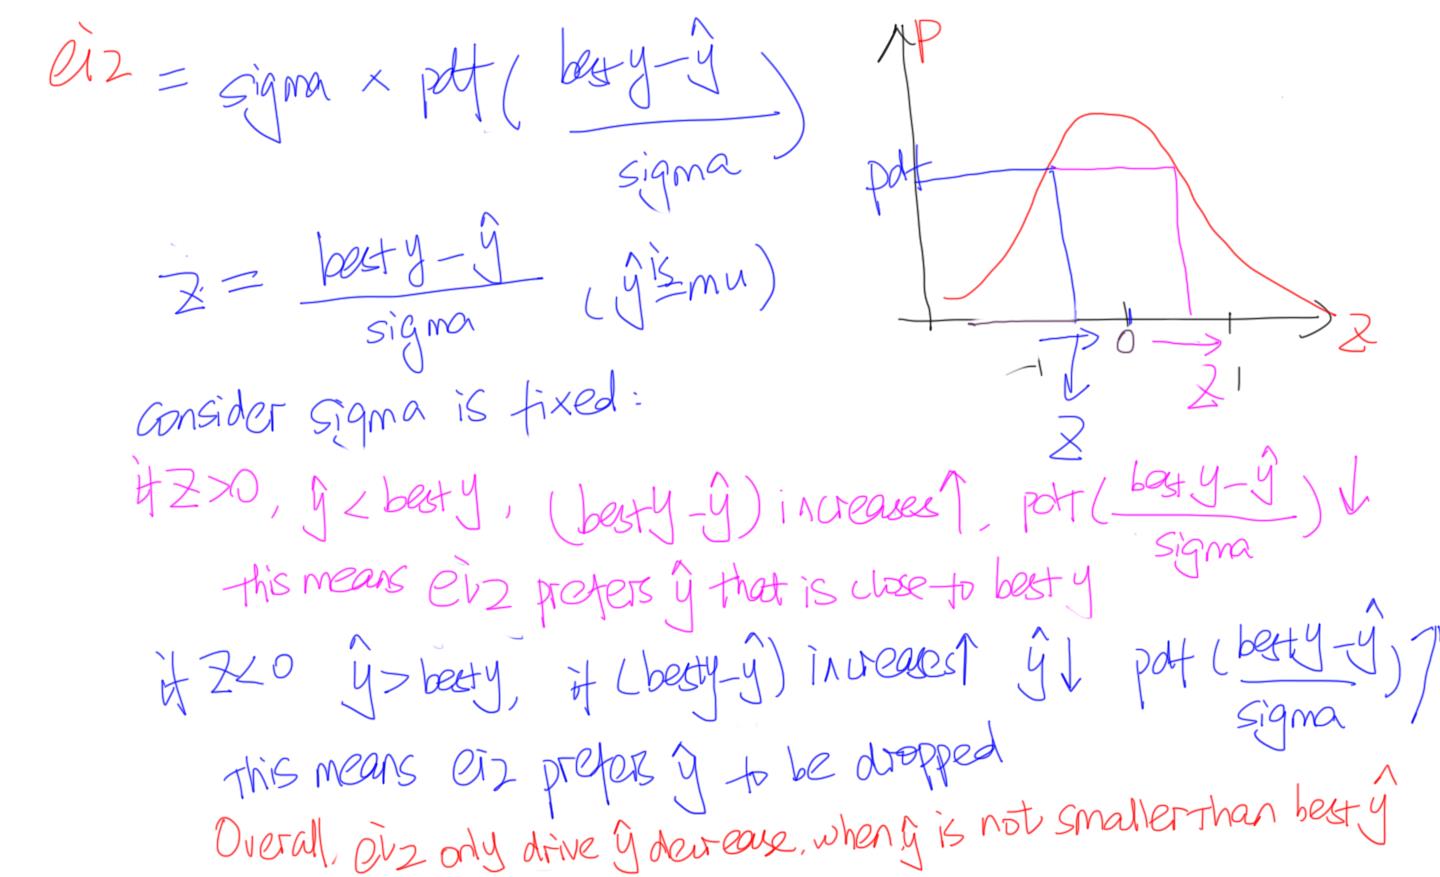 ei2 = sigma × pdf( best y - ŷ / sigma )
z = best y - ŷ / sigma ( ŷ is mu )
P
pdf
-1 0 1
z z z
consider sigma is fixed:
if z>0, ŷ < best y, (best y - ŷ) increases↑, pdf( best y - ŷ / sigma ) ↓
this means ei2 prefers ŷ that is close to best y
if z<0 ŷ > best y, if (best y - ŷ) increases↑ ŷ↓ pdf( best y - ŷ / sigma ) ↑
this means ei2 prefers ŷ to be dropped
Overall, ei2 only drive ŷ decrease, when ŷ is not smaller than best ŷ